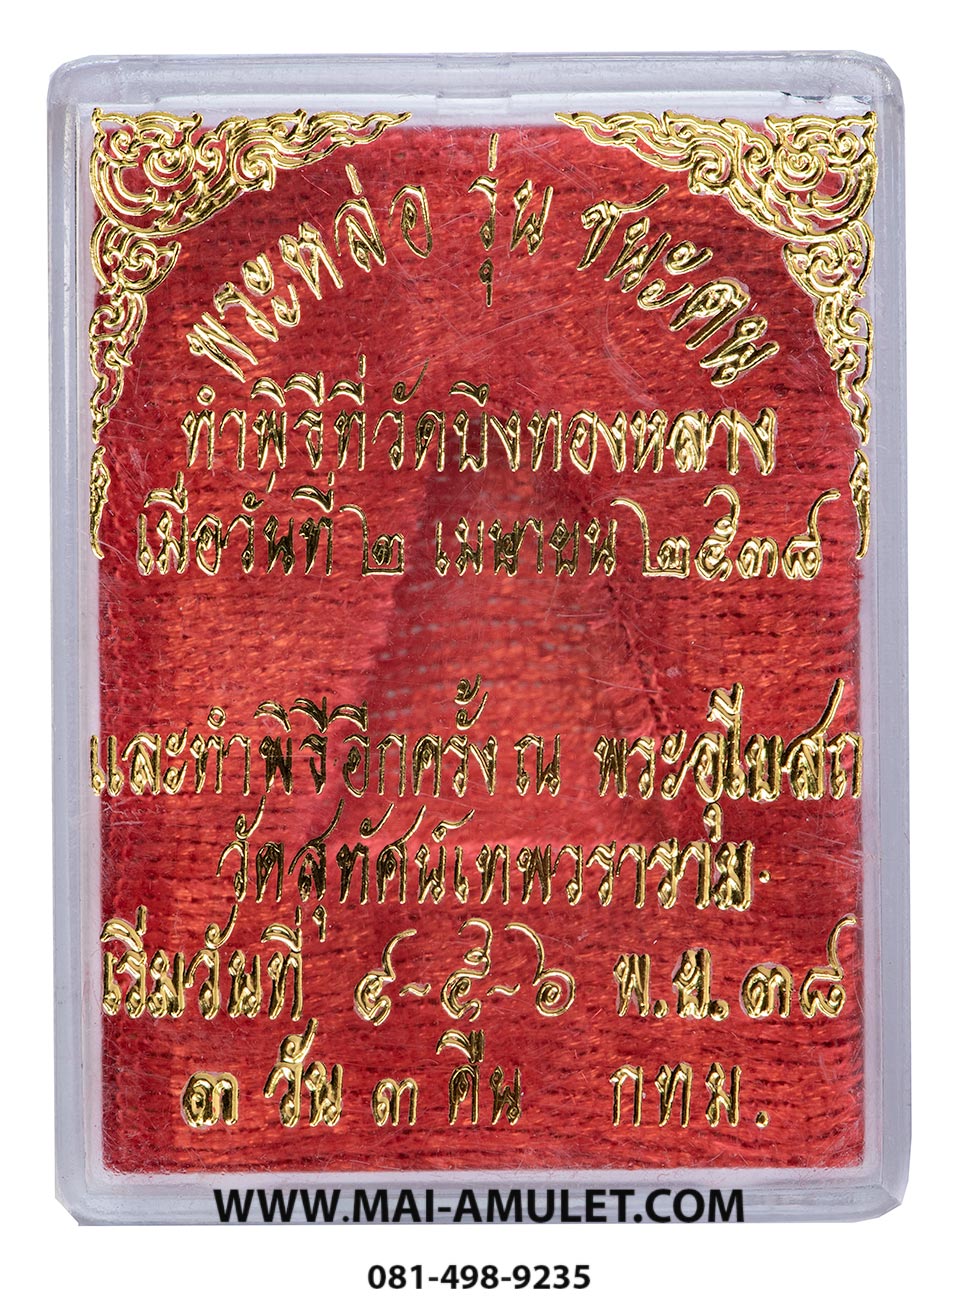 พระหล่อ รุ่น ชนะคน
ทำพิธีที่วัดบึงทองหลาง
เมื่อวันที่ ๒ เมษายน ๒๕๓๘
และทำพิธีอีกครั้ง ณ พระอุโบสถ
วัดสุทัศน์เทพวราราม
เริ่มวันที่ ๔-๕-๖ พ.ย. ๓๘
๓ วัน ๓ คืน กทม.
WWW.MAI-AMULET.COM
081-498-9235